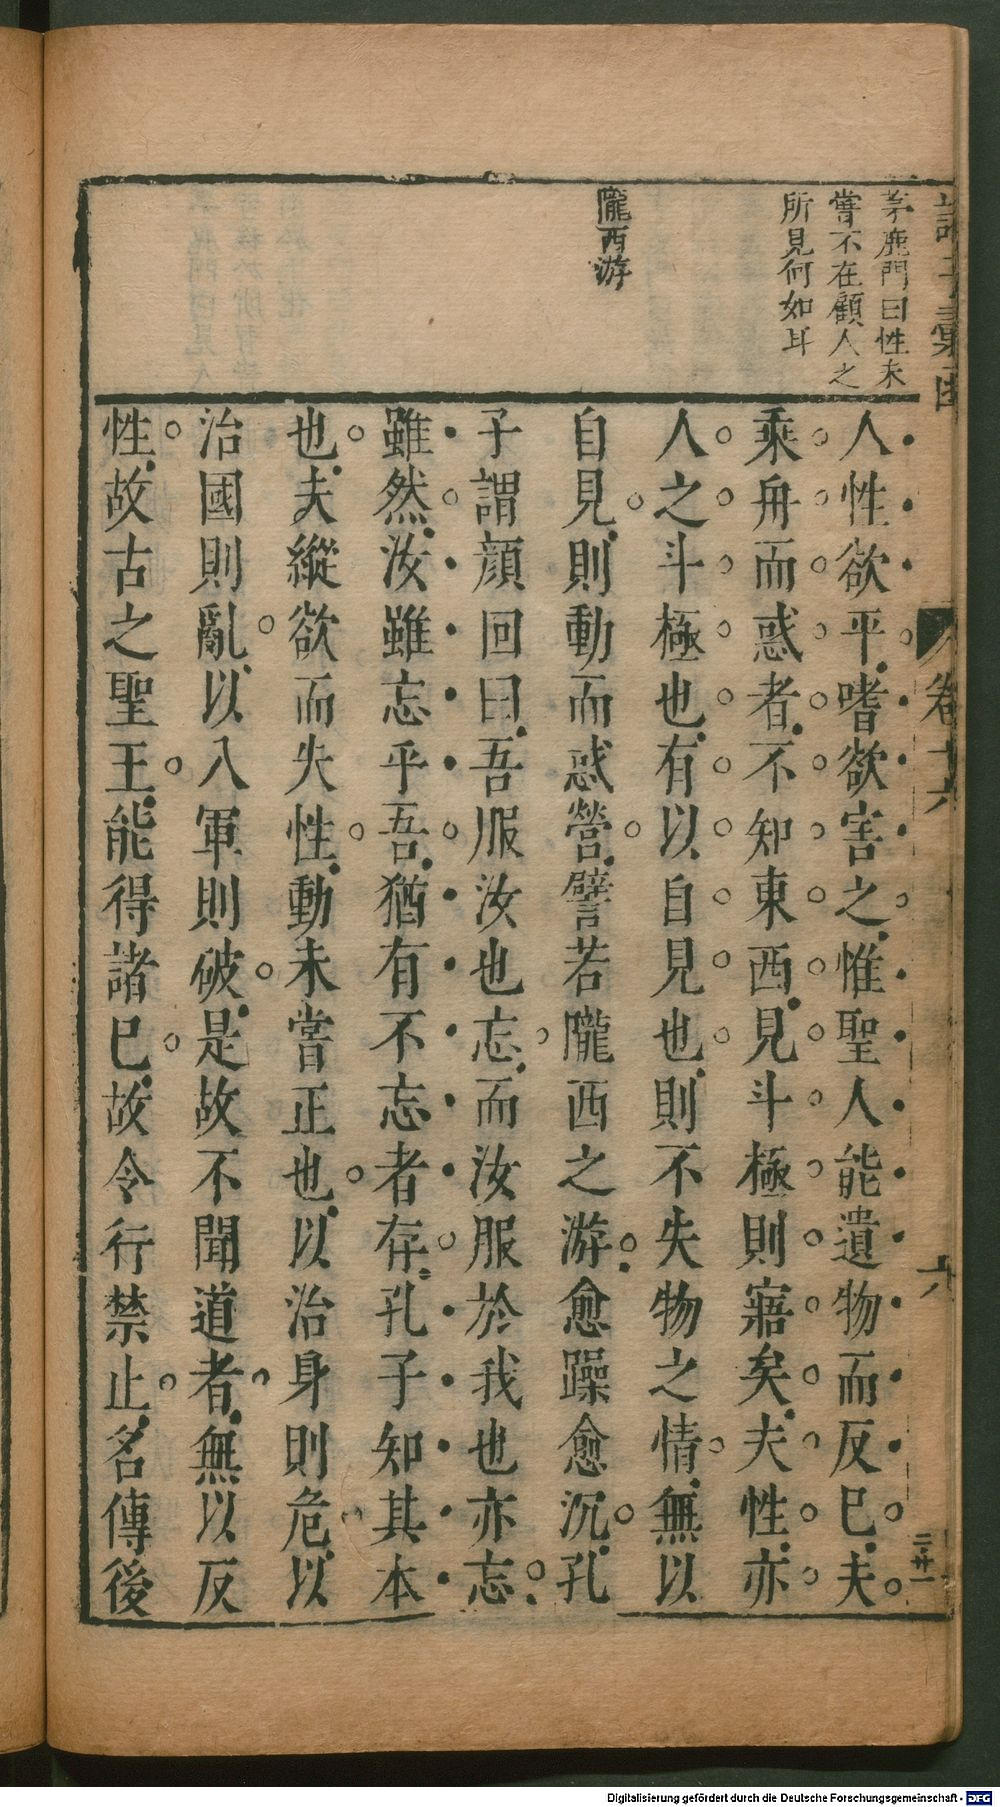 茅鹿門曰性未
嘗不在顧人之
所見何如耳
隴西游
人性欲平嗜欲害之惟聖人能遺物而反已夫
乘舟而惑者不知東西見斗極則寤矣夫性亦
人之斗極也有以自見也則不失物之情無以
自見則動而惑營譬若隴西之游愈躁愈沉孔
子謂顔回曰吾服汝也忘而汝服於我也亦忘
雖然汝雖忘乎吾猶有不忘者存孔子知其本
也夫縱欲而失性動未嘗正也以治身則危以
治國則亂以入軍則破是故不聞道者無以反
性故古之聖王能得諸已故令行禁止名傳後
卷十六
六
Digitalisierung gefördert durch die Deutsche Forschungsgemeinschaft - DFG